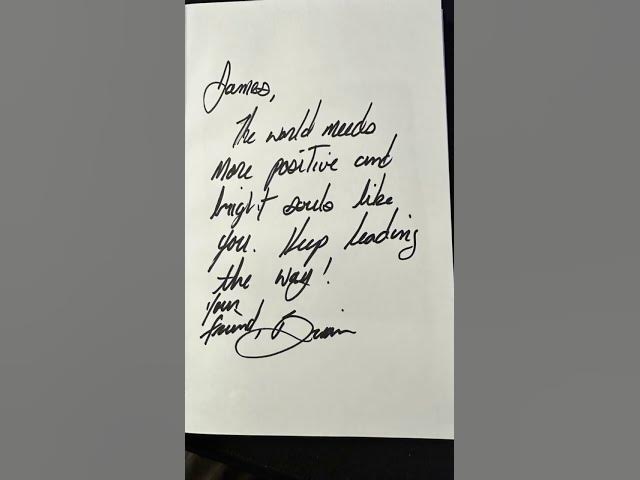 James,
The world needs
more positive and
bright souls like
you. Keep leading
the way!
Your
friend, Brian